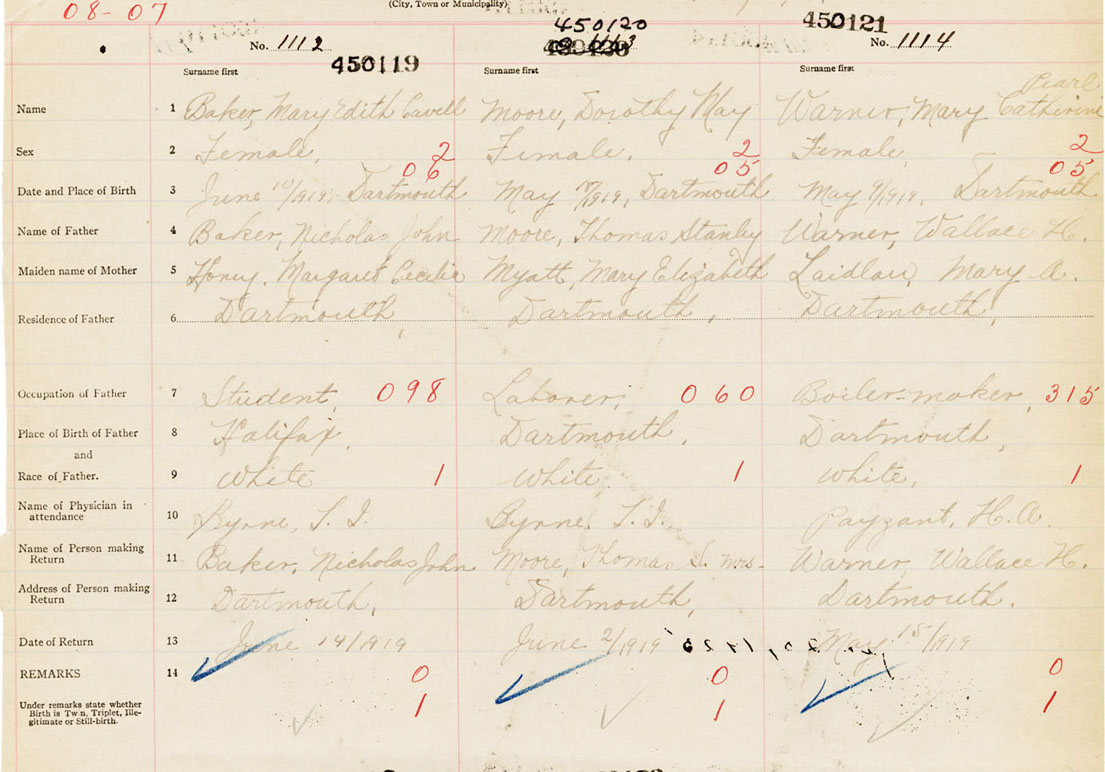 08-07
(City, Town or Municipality)
No. 1112
450119
450120
1113
450121
No. 1114
Surname first
Surname first
Surname first
Name 1 Baker, Mary Edith Cavell
Moore, Dorothy May
Warner, Mary Catherine
Pearl
Sex 2 Female, 2
Female. 2
Female, 2
06
05
05
Date and Place of Birth 3 June 10/1919, Dartmouth
May /1919, Dartmouth
May 9/1919, Dartmouth
Name of Father 4 Baker, Nicholas John
Moore, Thomas Stanley
Warner, Wallace H.
Maiden name of Mother 5 Margaret Cecilia
Myatt, Mary Elizabeth
Laidlaw, Mary A.
Residence of Father 6 Dartmouth,
Dartmouth,
Dartmouth,
Occupation of Father 7 Student, 098
Laborer, 060
Boiler-maker, 315
Place of Birth of Father 8 Halifax,
Dartmouth,
Dartmouth,
and
Race of Father. 9 White 1
White. 1
White, 1
Name of Physician in
attendance 10 Byrne,
Byrne,
Payzant, H.A.
Name of Person making
Return 11 Baker, Nicholas John
Moore, Thomas S. Mrs.
Warner, Wallace H.
Address of Person making
Return 12 Dartmouth,
Dartmouth,
Dartmouth.
Date of Return 13 June 14/1919
June 2/1919
May 15/1919
REMARKS 14 0
0
0
Under remarks state whether
Birth is Twin, Triplet, Ille-
gitimate or Still-birth.
1
1
1